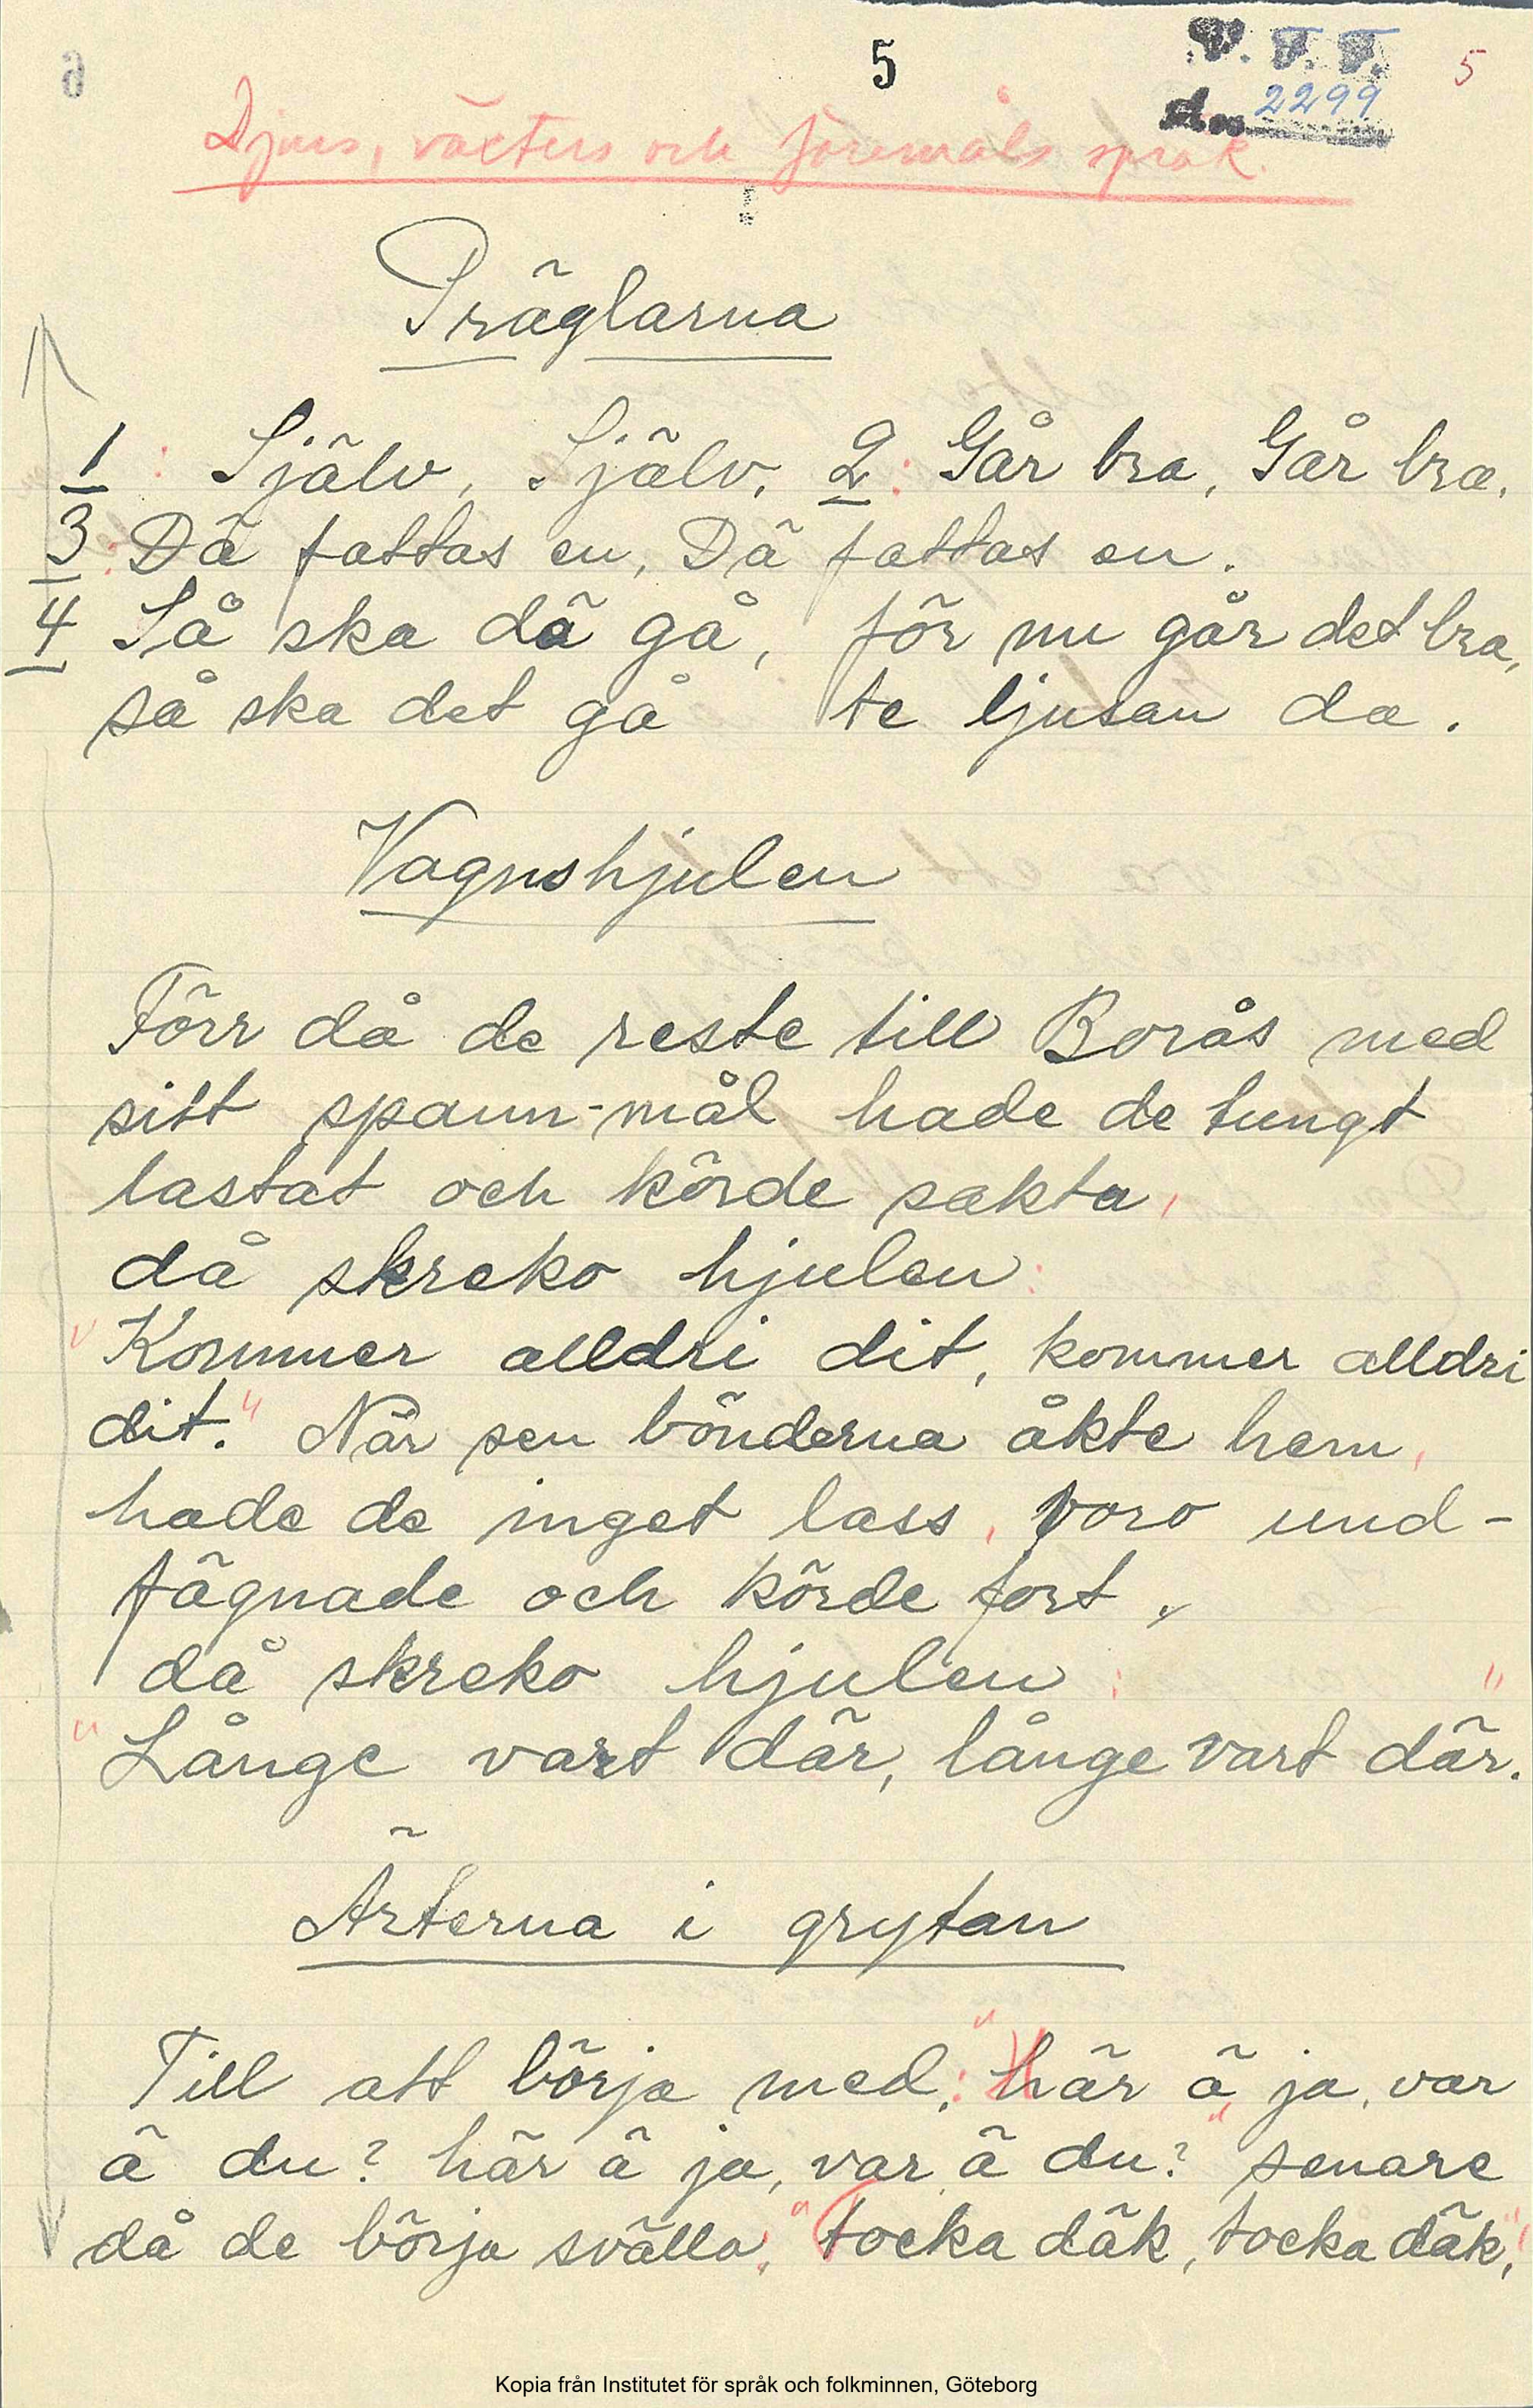 5
V. F. F.
2299
5
Djurs, växters och föremåls språk.
Präglarna
1: Själv, Själv, 2: Går bra, Går bra,
3: Dä fattas en, Dä fattas en.
4 Så ska dä gå, för nu går det bra,
så ska det gå te ljusan da.
Vagnshjulen
Förr då de reste till Borås med
sitt spann-mål hade de tungt
lastat och körde sakta,
då skreko hjulen:
"Kommer alldri dit, kommer alldri
dit." När sen bönderna åkte hem,
hade de inget lass, voro und-
fägnade och körde fort,
då skreko hjulen:
"Långe vart där, långe vart där."
Ärterna i grytan
Till att börja med: "här ä ja, var
ä du? här ä ja, var ä du?" senare
då de börja svälla, "tocka däk, tocka däk,"
Kopia från Institutet för språk och folkminnen, Göteborg